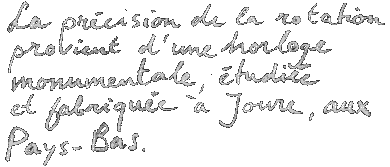 La précision de la rotation
provient d'une horloge
monumentale, étudiée
et fabriquée à Joure, aux
Pays-Bas.